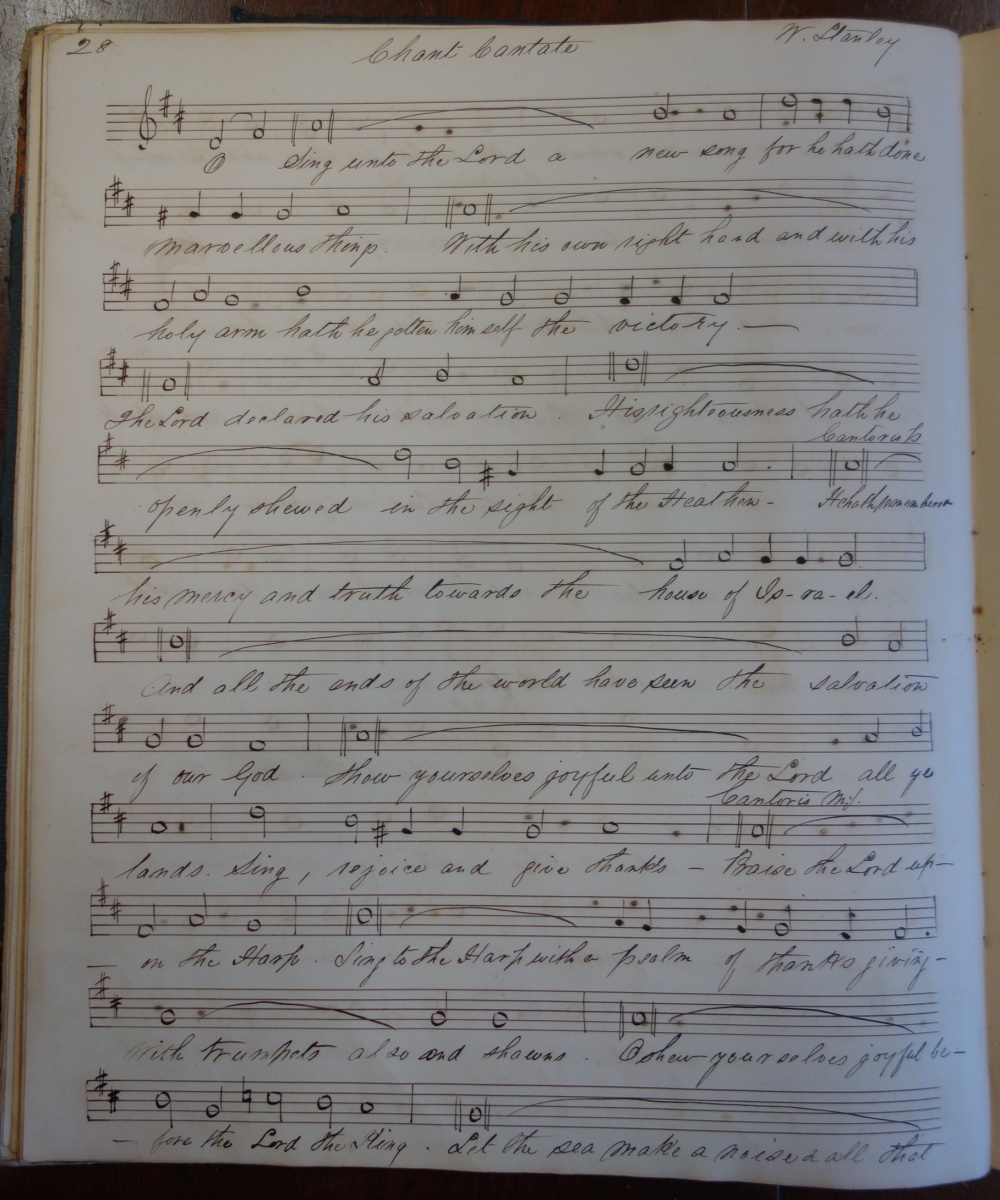 28
Chant Cantate
W. Stanley
O Sing unto the Lord a new song for he hath done
marvellous things. With his own right hand and with his
holy arm hath he gotten him self the victory.
The Lord declared his salvation. His righteousness hath he
Cantoris
openly shewed in the sight of the Heathen - He hath remembered
his mercy and truth towards the house of Is-ra-el.
And all the ends of the world have seen the salvation
of our God. Shew yourselves joyful unto the Lord all ye
Cantoris
lands. Sing, rejoice and give thanks - Praise the Lord up-
- on the Harp. Sing to the Harp with a psalm of thanks giving-
With trumpets also and shawns. O shew yourselves joyful be-
- fore the Lord the King. Let the sea make a noise & all that